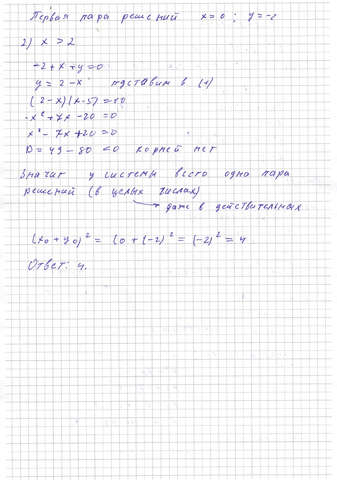 Первая пара решений x=0; y=-2
2) x > 2
-2+x+y=0
y = 2-x подставим в (1)
(2-x)(x-5)=10
-x²+7x-20=0
x²-7x+20=0
D=49-80 <0 корней нет
Значит у системы всего одна пара
решений (в целых числах)
даже в действительных
(x₀+y₀)² = (0+(-2)² = (-2)² = 4
Ответ: 4.